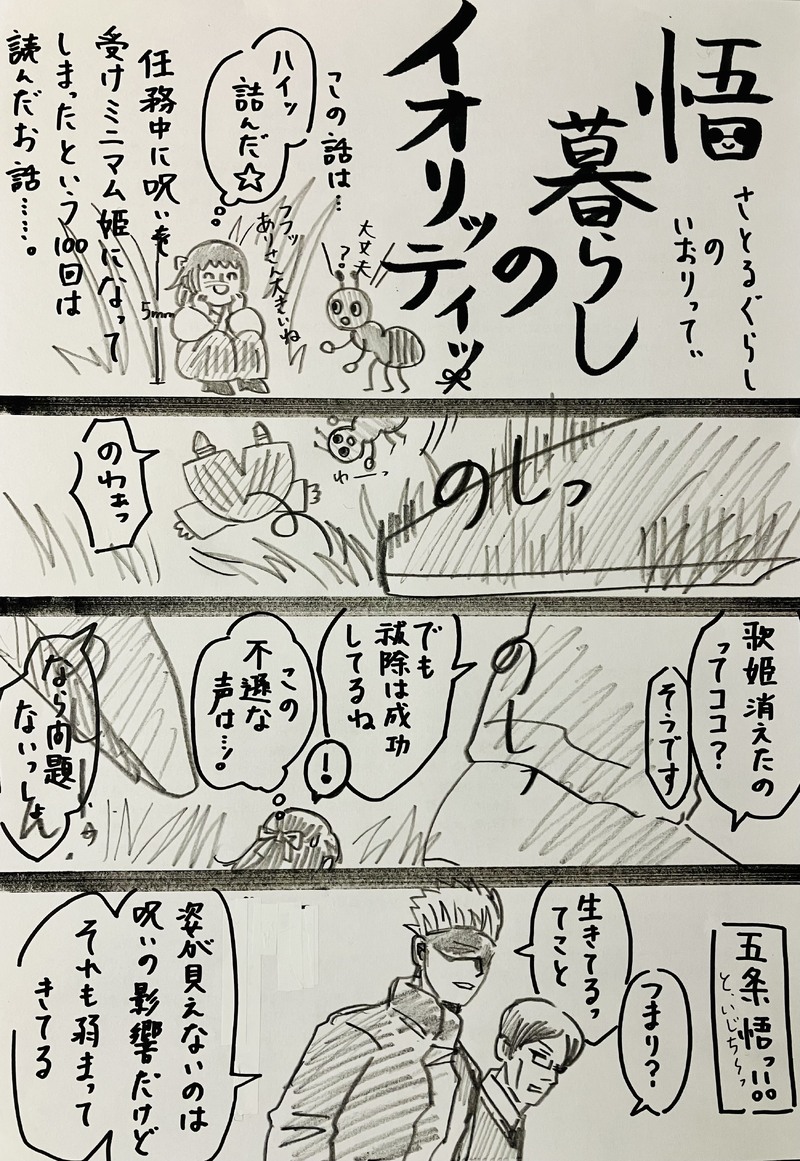 悟
暮らし
の
イオリッティッ
さとるぐらし
の
いおりってぃ
この話は…
ハイッ
詰んだ☆
任務中に呪いを
受けミニマム姫になって
しまったという100回は
読んだお話……。
大丈夫
?
フフッ
ありさん大きいね
5mm
のしっ
わーっ
のわぁっ
歌姫消えたの
ってココ?
そうです
のしっ
でも
祓除は成功
してるね
!
この
不遜な
声は…!。
なら問題
ないっしょ
五条悟っ!!。
と、いじち〜っ
つまり?
生きてるっ
てこと
姿が見えないのは
呪いの影響だけど
それも弱まって
きてる